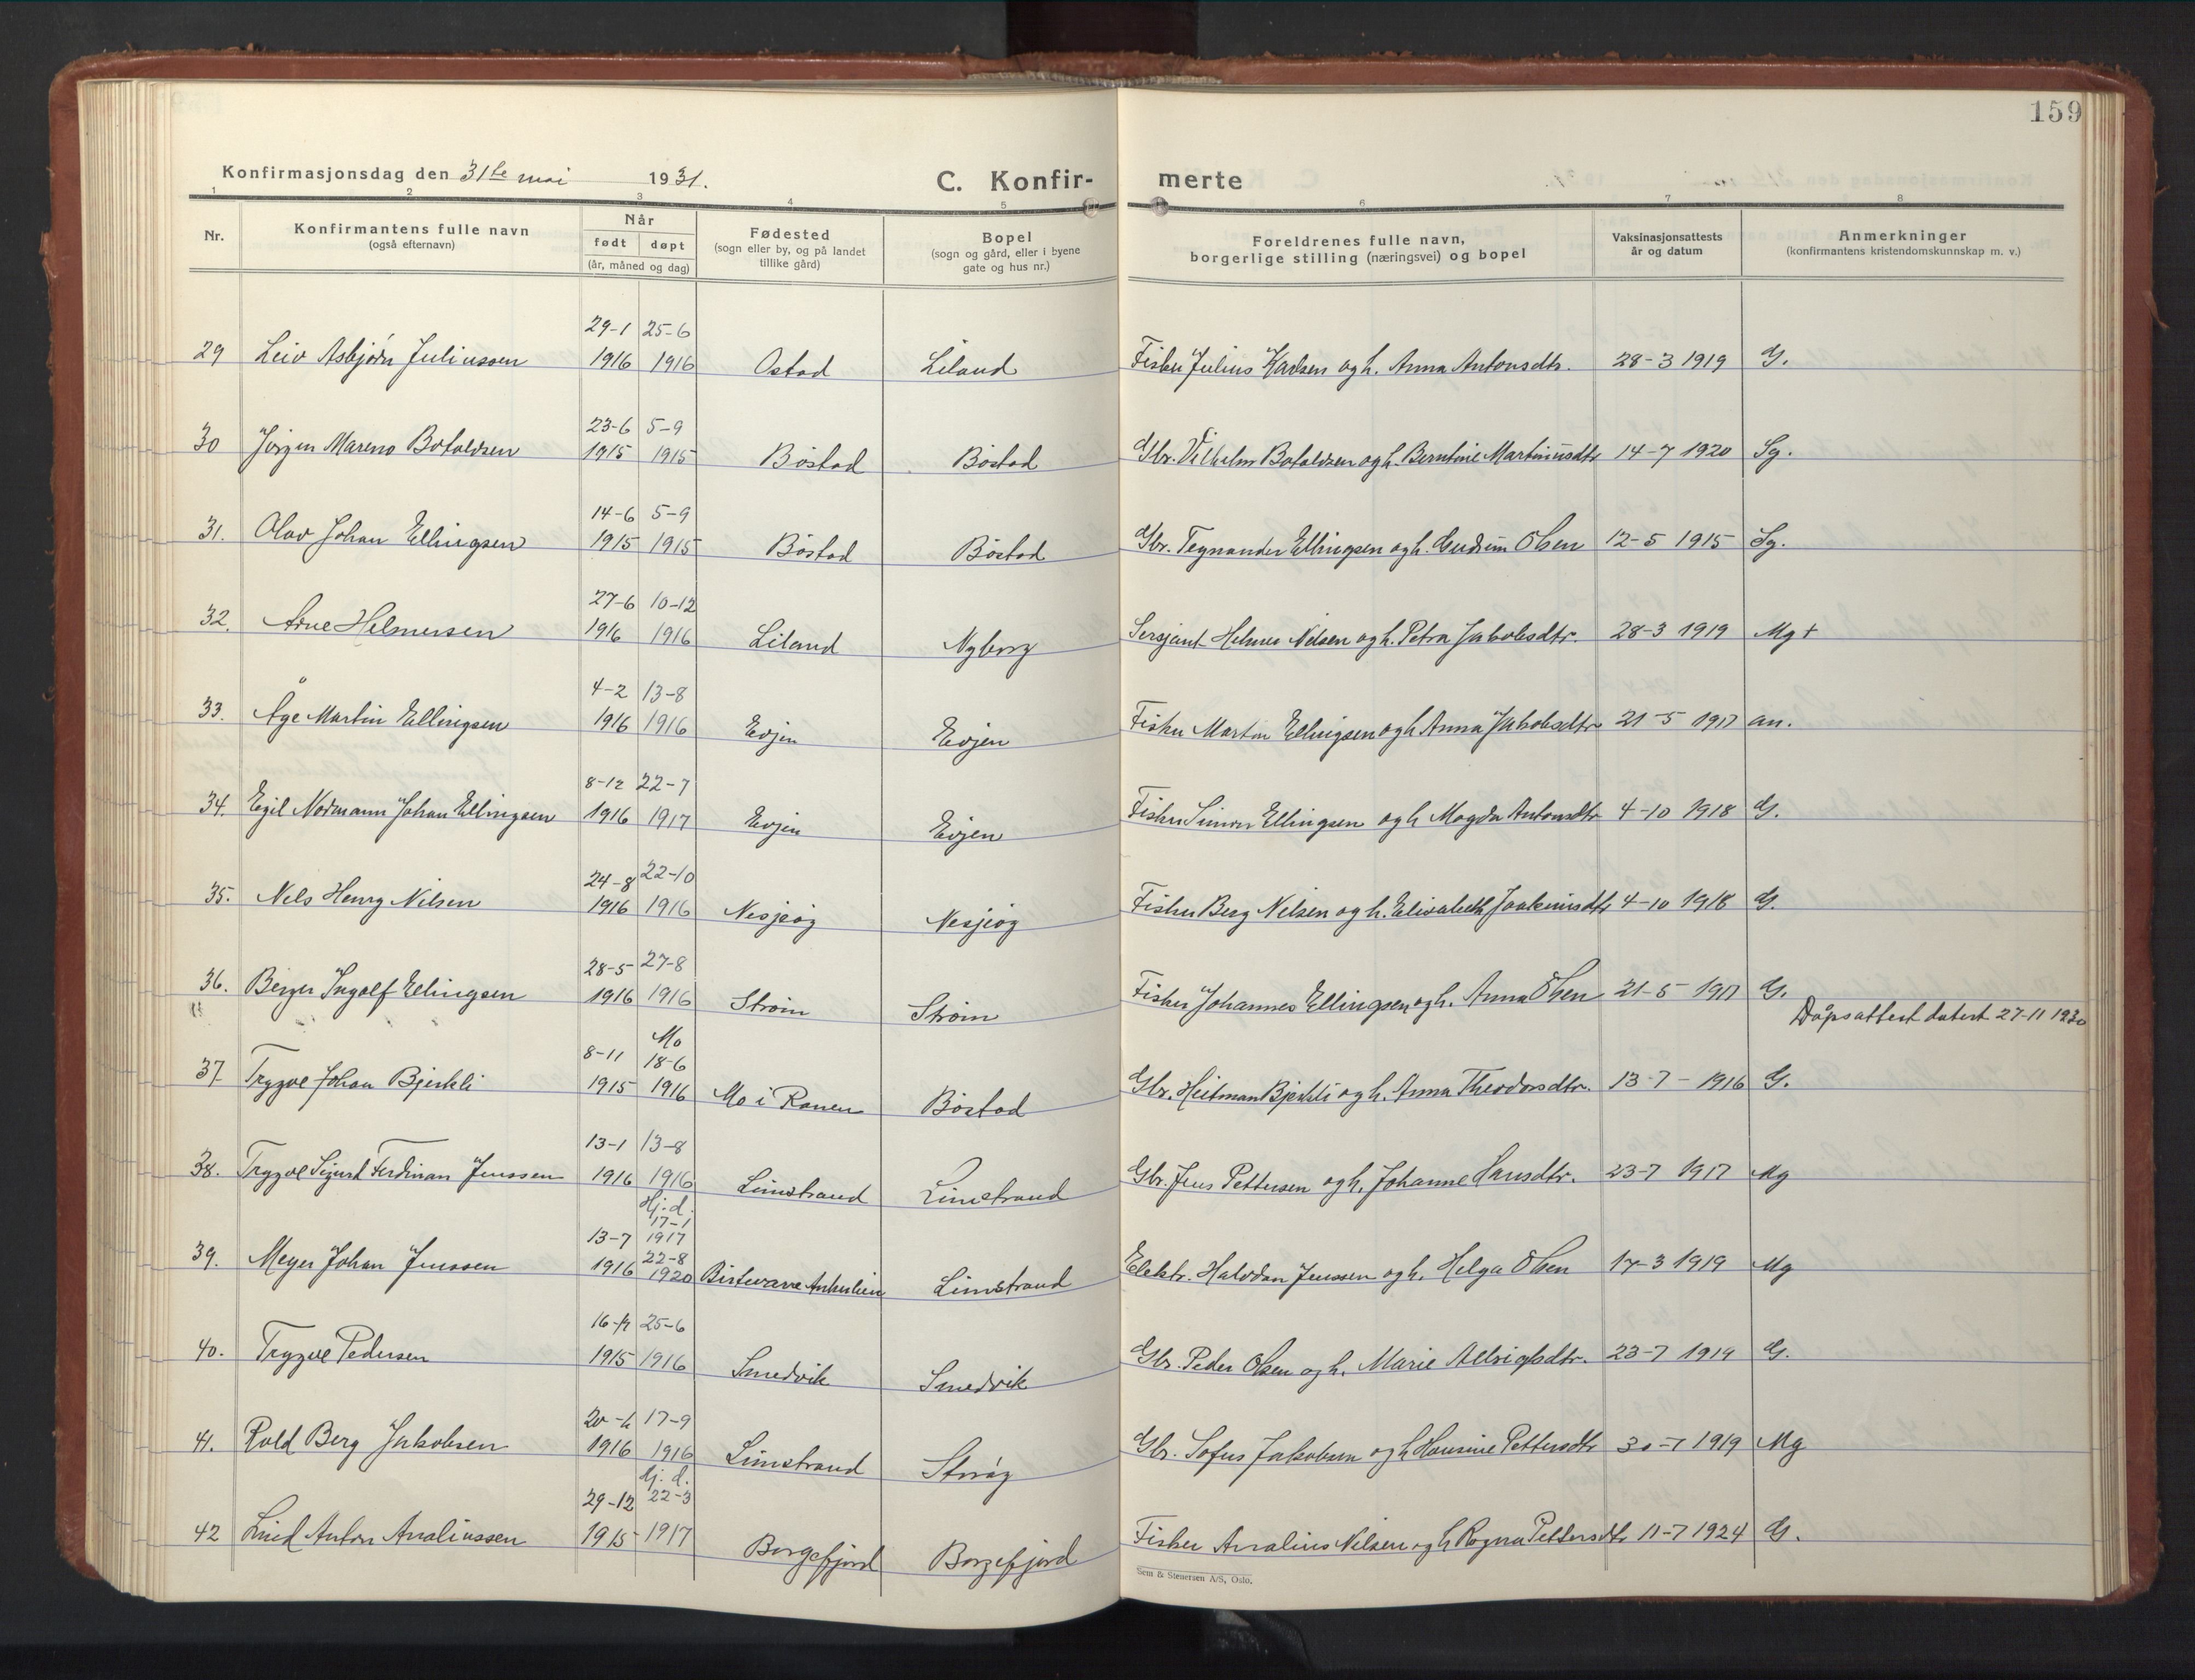 159
Konfirmasjonsdag den 31te mai 1931.
C. Konfir-
merte
1 2 3 4 5 6 7 8
Nr.
Konfirmantens fulle navn
(også efternavn)
Når
født døpt
(år, måned og dag)
Fødested
(sogn eller by, og på landet
tillike gård)
Bopel
(sogn og gård, eller i byene
gate og hus nr.)
Foreldrenes fulle navn,
borgerlige stilling (næringsvei) og bopel
Vaksinasjonsattests
år og datum
Anmerkninger
(konfirmantens kristendomskunnskap m. v.)
29-1 25-6
29 Leiv Asbjørn Juliussen 1916 1916 Ostad Liland Fisker Julius Karlsen og h. Anna Antonsdtr. 28-3 1919 G.
23-6 5-9
30 Jørgen Mareno Botoldsen 1915 1915 Bøstad Bøstad Gbr. Vilhelm Botoldsen og h. Berntine Martinusdtr 14-7 1920 Sg.
14-6 5-9
31. Olav Johan Ellingsen 1915 1915 Bøstad Bøstad Gbr. Tegnander Ellingsen og h. Gudrun Olsen 12-5 1915 Sg.
27-6 10-12
32. Arne Helmersen 1916 1916 Liland Nyborg Sersjant Helmer Nilsen og h. Petra Jakobsdtr. 28-3 1919 Mg+
4-2 13-8
33. Åge Martin Ellingsen 1916 1916 Evjen Evjen Fisker Martin Ellingsen og h Anna Jakobsdtr 21-5 1917 an.
8-12 22-7
34. Egil Normann Johan Ellingsen 1916 1917 Evjen Evjen Fisker Simon Ellingsen og h Magda Antonsdtr 4-10 1918 G.
24-8 22-10
35. Nels Henry Nilsen 1916 1916 Nesjeøy Nesjeøy Fisker Berg Nilsen og h. Elisabeth Joakimsdtr 4-10 1918 G.
28-5 27-8
36. Berger Ingolf Ellingsen 1916 1916 Strøm Strøm Fisker Johannes Ellingsen og h. Anna Olsen 21-5 1917 G.
Dåpsattest datert 27-11 1930
Mo
8-11 18-6
37. Trygve Johan Bjerkli 1915 1916 Mo i Ranen Bøstad Gbr. Heitman Bjerkli og h. Anna Theodorsdtr. 13-7-1916 G.
13-1 13-8
38. Trygve Sigurd Ferdinan Jenssen 1916 1916 Limstrand Limstrand Gbr. Jens Pettersen og h. Johanne Hansdtr. 23-7 1917 Mg
Hj. d.
17-1
13-7 1917
22-8
39. Meyer Johan Jenssen 1916 1920 Limstrand Elektr. Halvdan Jenssen og h. Helga Olsen 17-3 1919 Mg
25-6
40. Trygve Pedersen 1915 1916 Smedvik Smedvik Gbr. Peder Olsen og h. Marie 23-7 1919 G.
17-9
41. Rold Berg Jakobsen 1916 1916 Limstrand Gbr. Sofus Jakobsen og h Hansine Pettersdtr 30-7 1919 Mg
Hj. d.
29-12 22-3
42 Anton Analiussen 1915 1917 Borgefjord Borgefjord Fisker Analius Nilsen og h Ragna Pettersdtr 11-7 1924 G.
Sem & Stenersen A/S, Oslo.